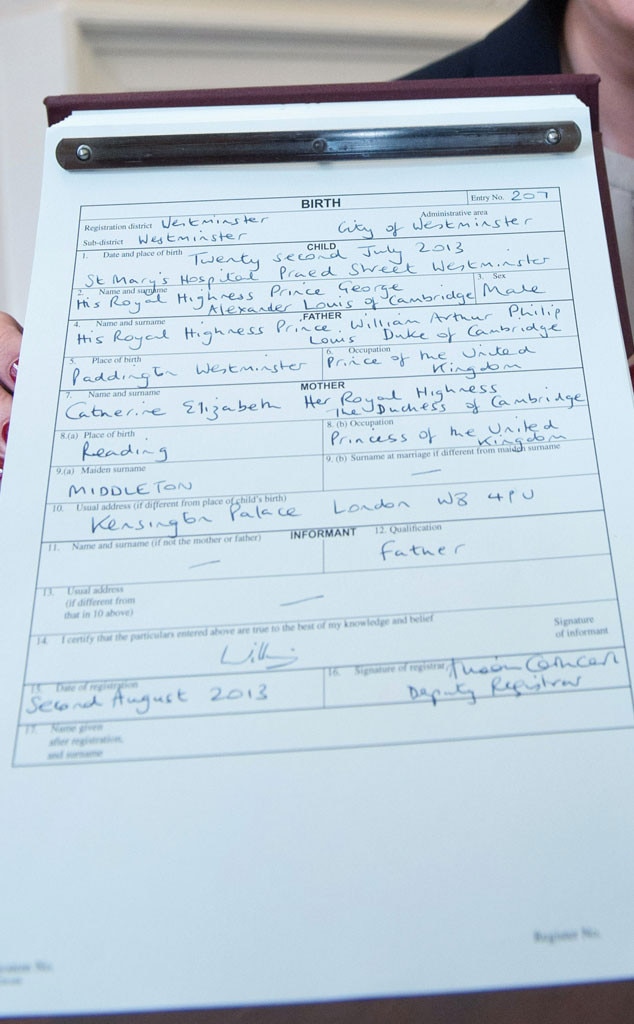 BIRTH
Entry No. 207
Registration district Westminster
Administrative area
Sub-district Westminster
City of Westminster
CHILD
1. Date and place of birth Twenty second July 2013
St Mary's Hospital Praed Street Westminster
2. Name and surname His Royal Highness Prince George
Alexander Louis of Cambridge
3. Sex
Male
FATHER
4. Name and surname
His Royal Highness Prince William Arthur Philip
Louis Duke of Cambridge
5. Place of birth
Paddington Westminster
6. Occupation
Prince of the United
Kingdom
MOTHER
7. Name and surname
Catherine Elizabeth Her Royal Highness
The Duchess of Cambridge
8.(a) Place of birth
Reading
8. (b) Occupation
Princess of the United
Kingdom
9.(a) Maiden surname
MIDDLETON
9. (b) Surname at marriage if different from maiden surname
—
10. Usual address (if different from place of child's birth)
Kensington Palace London W8 4PU
INFORMANT
11. Name and surname (if not the mother or father)
—
12. Qualification
Father
13. Usual address
(if different from
that in 10 above)
—
14. I certify that the particulars entered above are true to the best of my knowledge and belief
Signature
of informant
15. Date of registration
Second August 2013
16. Signature of registrar
Deputy Registrar
17. Name given
after registration,
and surname
Register No.